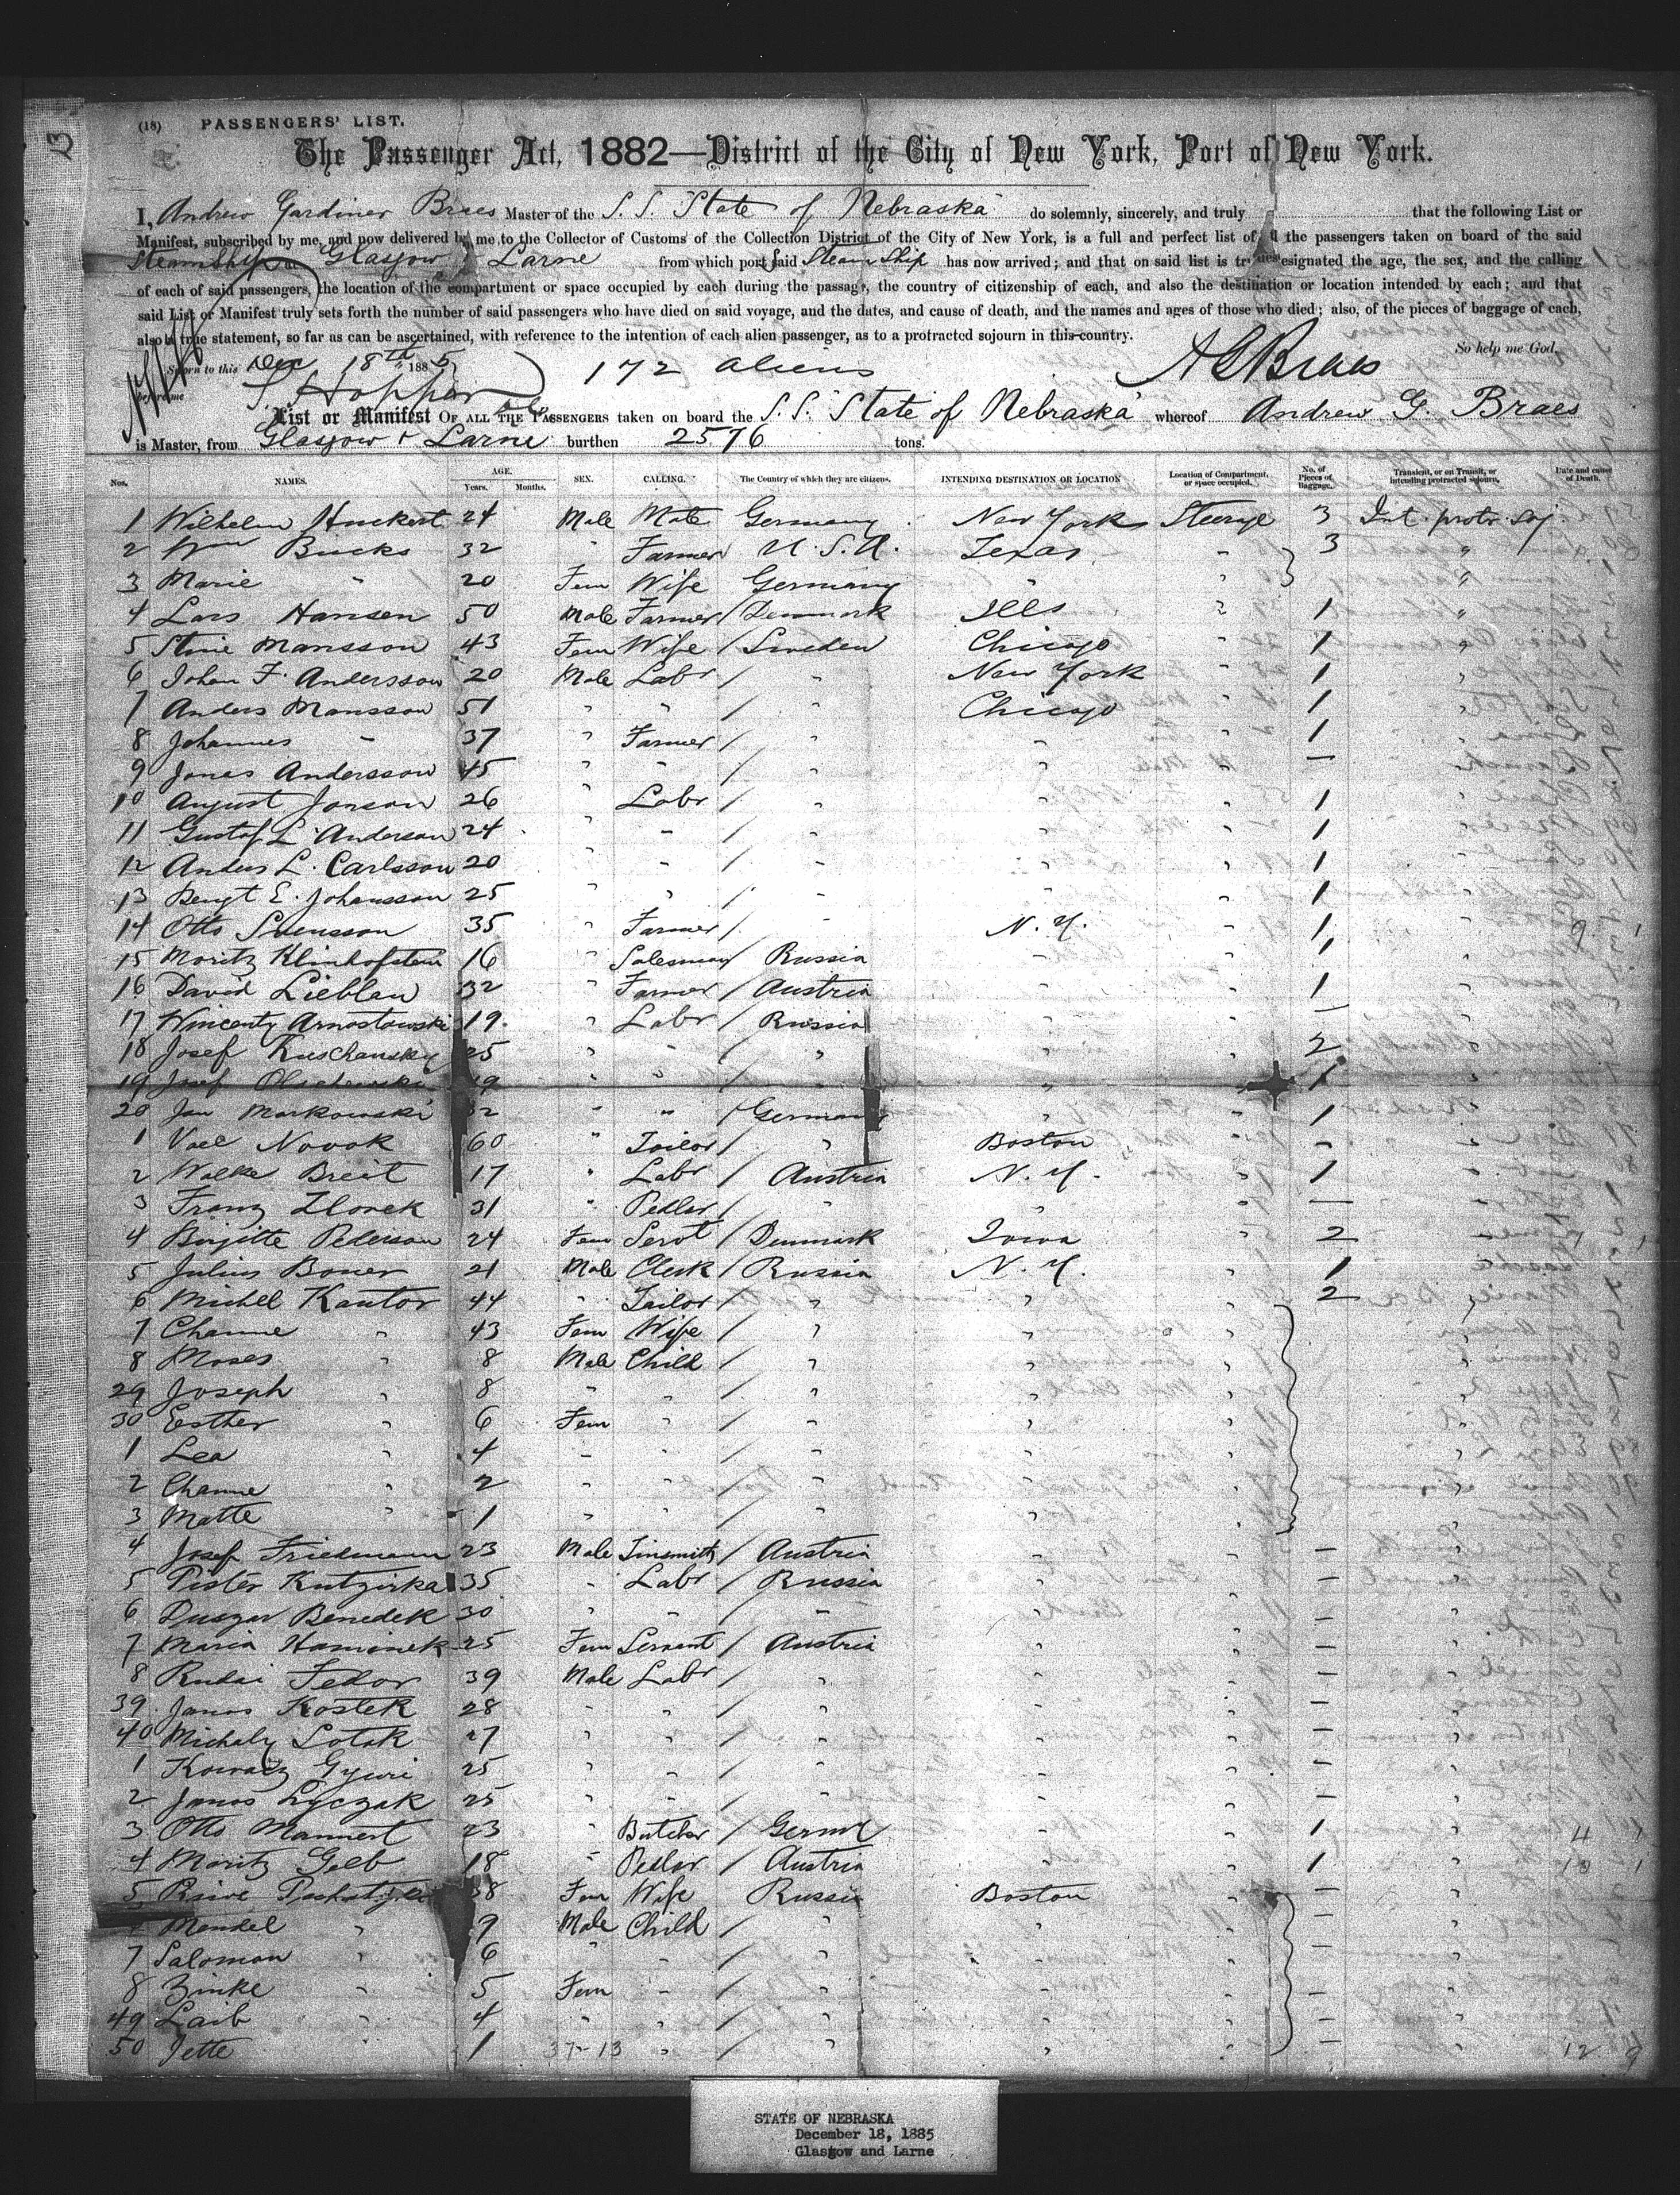 (18) PASSENGERS' LIST.
The Passenger Act, 1882—District of the City of New York, Port of New York.
I, Andrew Gardiner Braes Master of the S.S. "State of Nebraska" do solemnly, sincerely, and truly that the following List or
Manifest, subscribed by me, and now delivered by me to the Collector of Customs of the Collection District of the City of New York, is a full and perfect list of all the passengers taken on board of the said
Steamship Glasgow & Larne from which port said Steam Ship has now arrived; and that on said list is truly designated the age, the sex, and the calling
of each of said passengers, the location of the compartment or space occupied by each during the passage, the country of citizenship of each, and also the destination or location intended by each; and that
said List or Manifest truly sets forth the number of said passengers who have died on said voyage, and the dates, and cause of death, and the names and ages of those who died; also, of the pieces of baggage of each,
also a true statement, so far as can be ascertained, with reference to the intention of each alien passenger, as to a protracted sojourn in this country.
So help me God,
Sworn to this Dec 18th 1885 172 aliens AGBraes
before me Hopper
List or Manifest OF ALL THE PASSENGERS taken on board the S.S. "State of Nebraska" whereof Andrew G. Braes
is Master, from Glasgow & Larne burthen 2576 tons.
Nos. NAMES. AGE. Years. Months. SEX. CALLING. The Country of which they are citizens. INTENDING DESTINATION OR LOCATION Location of Compartment, or space occupied. No. of Pieces of Baggage. Transient, or on Transit, or intending protracted sojourn. Date and cause of Death.
1 Wilhelm Huckert 24 Male Mate Germany New York Steerge 3 Int. protr. soj.
2 Wm Bucks 32 " Farmer U.S.A. Texas " 3 "
3 Marie " 20 Fem Wife Germany " " "
4 Lars Hansen 50 Male Farmer / Denmark Ills " 1 "
5 Stine Mansson 43 Fem Wife / Sweden Chicago " 1 "
6 Johan F. Andersson 20 Male Labr / " New York " 1 "
7 Anders Mansson 51 " " / " Chicago " 1 "
8 Johannes " 37 " Farmer / " " " 1 "
9 Jonas Andersson 45 " " / " " " — "
10 August Jonson 26 " Labr / " " " 1 "
11 Gustaf L. Anderson 24 " " / " " " 1 "
12 Anders L. Carlsson 20 " " / " " " 1 "
13 Bengt E. Johansson 25 " " / " " " 1 "
14 Otto Svensson 35 " Farmer / " N.Y. " 1 " 9
15 Moritz Klinhofstein 16 " Salesman / Russia " " 1 "
16 David Lieblau 32 " Farmer / Austria " " 1 "
17 Wincenty Arnostowski 19 " Labr / Russia " " — "
18 Josef Kuschansky 25 " " / " " " 2 "
19 Josef Olschewski 19 " " / " " " 1 "
20 Jan Markowski 32 " " / Germany " " 1 "
1 Vael Novok 60 " Tailor / " Boston " - "
2 Wolke Breit 17 " Labr / Austria N.Y. " 1 "
3 Franz Zlonek 31 " Pedlar / " " " — "
4 Birgitte Pederson 24 Fem Servt / Denmark Iowa " 2 "
5 Julius Boner 21 Male Clerk / Russia N.Y. " 1 "
6 Michel Kantor 44 " Tailor / " " " 2 "
7 Channe " 43 Fem Wife / " " " "
8 Moses " 8 Male Child / " " " "
29 Joseph " 8 " " / " " " "
30 Esther " 6 Fem " / " " " "
1 Lea " 4 " " / " " " "
2 Channe " 2 " " / " " " "
3 Matte " 1 " " / " " " "
4 Josef Friedmann 23 Male Tinsmith / Austria " " - "
5 Pister Kutzirka 35 " Labr / Russia " " - "
6 Duszar Benedek 30 " " / " " " - "
7 Maria Hamonek 25 Fem Servant / Austria " " - "
8 Rudai Fedor 39 Male Labr / " " " - "
39 Janos Kostek 28 " " / " " " - "
40 Michaly Sotak 27 " " / " " " - "
1 Kowacz Gyuri 25 " " / " " " - "
2 Janos Lyczak 25 " " / " " " - "
3 Otto Mannert 23 " Butcher / Germy " " 1 " 4
4 Moritz Gelb 18 " Pedlar / Austria " " 1 " 10
5 Reive 38 Fem Wife Russia Boston " - "
6 Mendel " 9 Male Child / " " " - "
7 Salomon " 6 " " / " " " - "
8 Zinke " 5 Fem " / " " " - "
49 Laib " 4 " " / " " " - "
50 Jette 1 37-13 " / " " " - " 12 9
STATE OF NEBRASKA
December 18, 1885
Glasgow and Larne